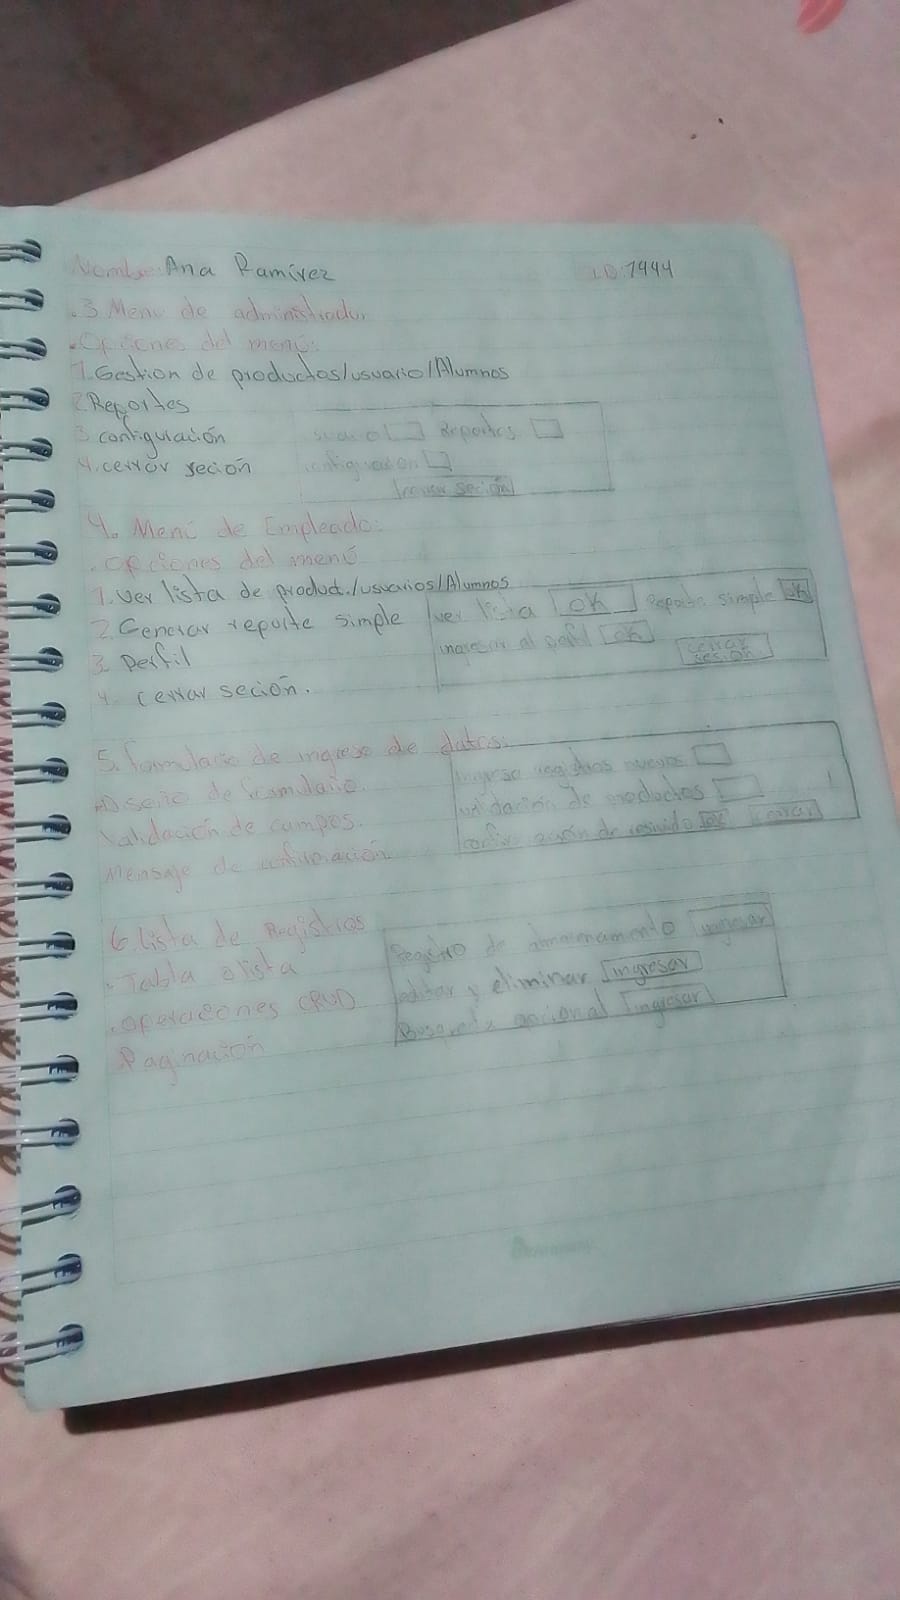 Nombre: Ana Ramírez ID:1444
.3 Menu de administrador
.Opciones del menú:
1.Gestion de productos/usuario/Alumnos
2.Reportes
3 configuración
Reportes
4.cerrar seción
configuracion
cerrar seción
4. Menú de Empleado:
.opciones del menú
1.ver lista de product./usuarios/Alumnos
ver lista OK Reporte simple OK
2.Generar reporte simple
ingresar al perfil OK
3. Perfil
cerrar sesion
4. cerrar seción.
5. Formulario de ingreso de datos:
Diseño de formulario.
nuevos
Validación de campos.
validación de productos
Mensaje de confirmación
cerrar
6 lista de Registros
Registro de ingresar
. Tabla o lista
editar y eliminar ingresar
. operaciones CRUD
opcional ingresar
Paginación